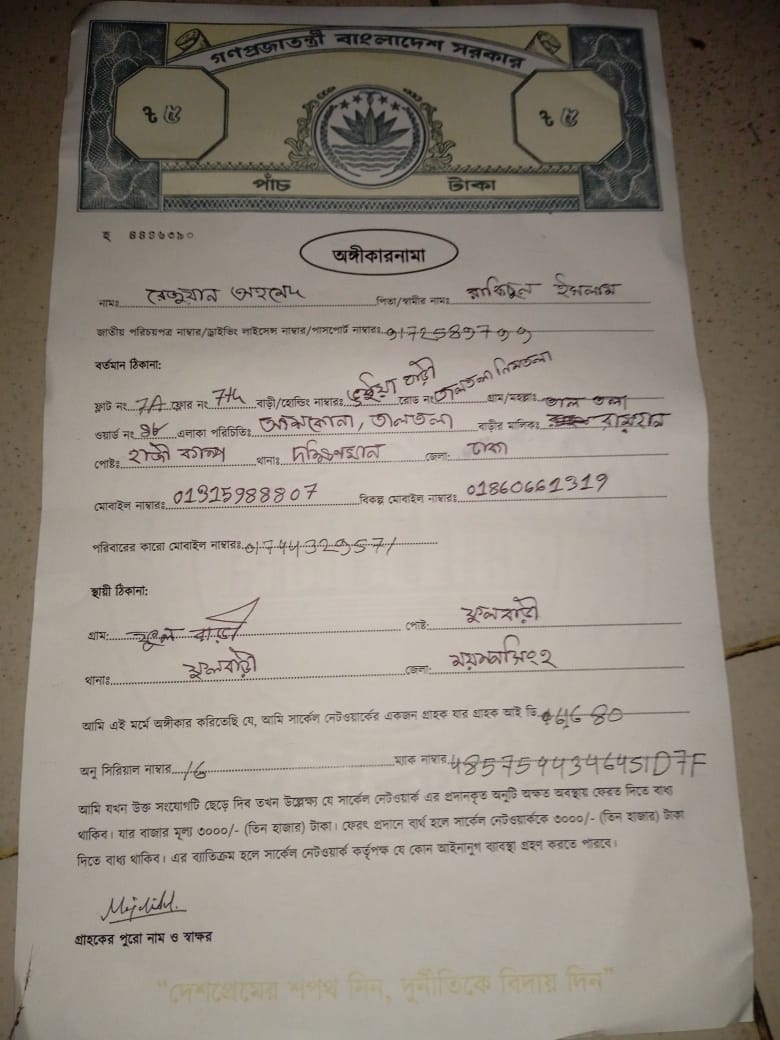 গণপ্রজাতন্ত্রী বাংলাদেশ সরকার
৳ ৫ ৳ ৫
পাঁচ টাকা
অঙ্গীকারনামা
নামঃ রেজুয়ান আহমেদ পিতা/স্বামীর নামঃ রাকিবুল ইসলাম
জাতীয় পরিচয়পত্র নাম্বার/ড্রাইভিং লাইসেন্স নাম্বার/পাসপোর্ট নাম্বারঃ
বর্তমান ঠিকানা:
ফ্লাট নং 7A ফ্লোর নং 7th বাড়ী/হোল্ডিং নাম্বারঃ ভূইয়া বাড়ী রোড নং তালতলা গ্রাম/মহল্লাঃ তাল তলা
ওয়ার্ড নং এলাকা পরিচিতিঃ আসকোনা, তালতলা বাড়ীর মালিকঃ
পোষ্টঃ হাজী ক্যাম্প থানাঃ দক্ষিণখান জেলা: ঢাকা
মোবাইল নাম্বারঃ 01315988807 বিকল্প মোবাইল নাম্বারঃ 01860661319
পরিবারের কারো মোবাইল নাম্বারঃ
স্থায়ী ঠিকানা:
গ্রাম: ফুল বাড়ী পোষ্ট: ফুলবাড়ী
থানাঃ ফুলবাড়ী জেলা: ময়মনসিংহ
আমি এই মর্মে অঙ্গীকার করিতেছি যে, আমি সার্কেল নেটওয়ার্কের একজন গ্রাহক যার গ্রাহক আই ডি
অনু সিরিয়াল নাম্বার 16 ম্যাক নাম্বার
আমি যখন উক্ত সংযোগটি ছেড়ে দিব তখন উল্লেক্ষ্য যে সার্কেল নেটওয়ার্ক এর প্রদানকৃত অনুটি অক্ষত অবস্থায় ফেরত দিতে বাধ্য
থাকিব। যার বাজার মূল্য ৩০০০/- (তিন হাজার) টাকা। ফেরৎ প্রদানে ব্যর্থ হলে সার্কেল নেটওয়ার্ককে ৩০০০/- (তিন হাজার) টাকা
দিতে বাধ্য থাকিব। এর ব্যাতিক্রম হলে সার্কেল নেটওয়ার্ক কর্তৃপক্ষ যে কোন আইনানুগ ব্যাবস্থা গ্রহণ করতে পারবে।
গ্রাহকের পুরো নাম ও স্বাক্ষর
“দেশপ্রেমের শপথ নিন, দুর্নীতিকে বিদায় দিন”